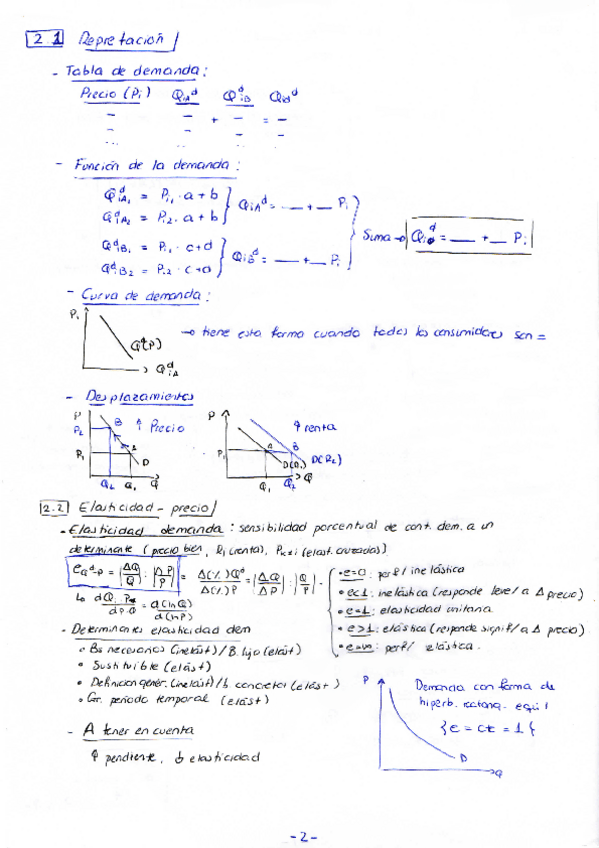 2.1 Repretación
- Tabla de demanda:
Precio (Pi) QiA^d QiB^d Qi^d
- - + - = -
- - - -
... ... ...
- Función de la demanda:
Q^d iA1 = Pi1 · a + b
Q^d iA2 = Pi2 · a + b
QiA^d = __ + __ Pi
Q^d iB1 = Pi1 · c + d
Q^d iB2 = Pi2 · c + d
QiB^d = __ + __ Pi
Suma → Qi^d = __ + __ Pi
- Curva de demanda:
Pi
Q(P)
Q^d iA
→ tiene esta forma cuando todos los consumidores son =
- Desplazamientos
P P2 P1 B A D Q2 Q1 Q
↑ Precio
P P1 A B D(R1) D(R2) Q1 Q2 Q
↑ renta
2.2 Elasticidad - precio
- Elasticidad demanda: sensibilidad porcentual de cant. dem. a un
determinante (precio bien, Ri (renta), Pk≠i (elast. cruzadas))
eQ^d-P = |ΔQ/Q| : |ΔP/P| = Δ(%)Q^d / Δ(%)P = |ΔQ/ΔP| : |Q/P|
↳ dQ · P / dP · Q = d(lnQ) / d(lnP)
• e=0: perf/ inelástica
• e<1: inelástica (responde leve/ a Δ precio)
• e=1: elasticidad unitaria
• e>1: elástica (responde signif/ a Δ precio)
• e=∞: perf/ elástica.
- Determinantes elasticidad dem
• Bs necesarios (inelást) / B. lujo (elást)
• Sustituible (elást)
• Definición gener. (inelást) / b concretos (elást)
• Gr. período temporal (elást)
- A tener en cuenta
↑ pendiente, ↓ elasticidad
P
D
Q
Demanda con forma de
hiperb. rectang. equil
{e = ct = 1}
- 2 -